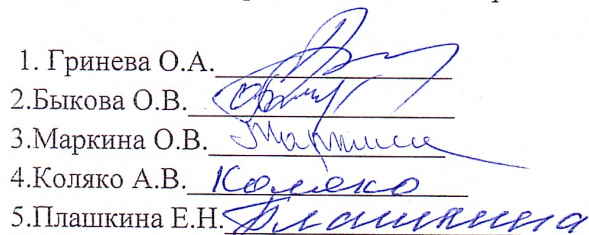 1. Гринева О.А.
2.Быкова О.В.
3.Маркина О.В. Маркина
4.Коляко А.В. Коляко
5.Плашкина Е.Н. Плашкина